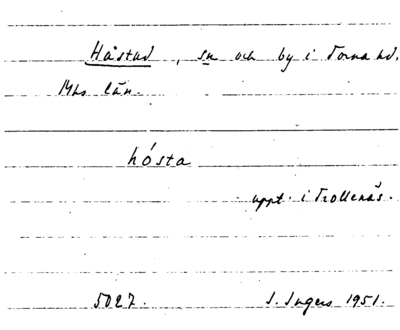 Håstad, sn och by i Torna hd.
Mhs län.
hósta
uppt. i Trollenäs.
5027. I. Ingers 1951.